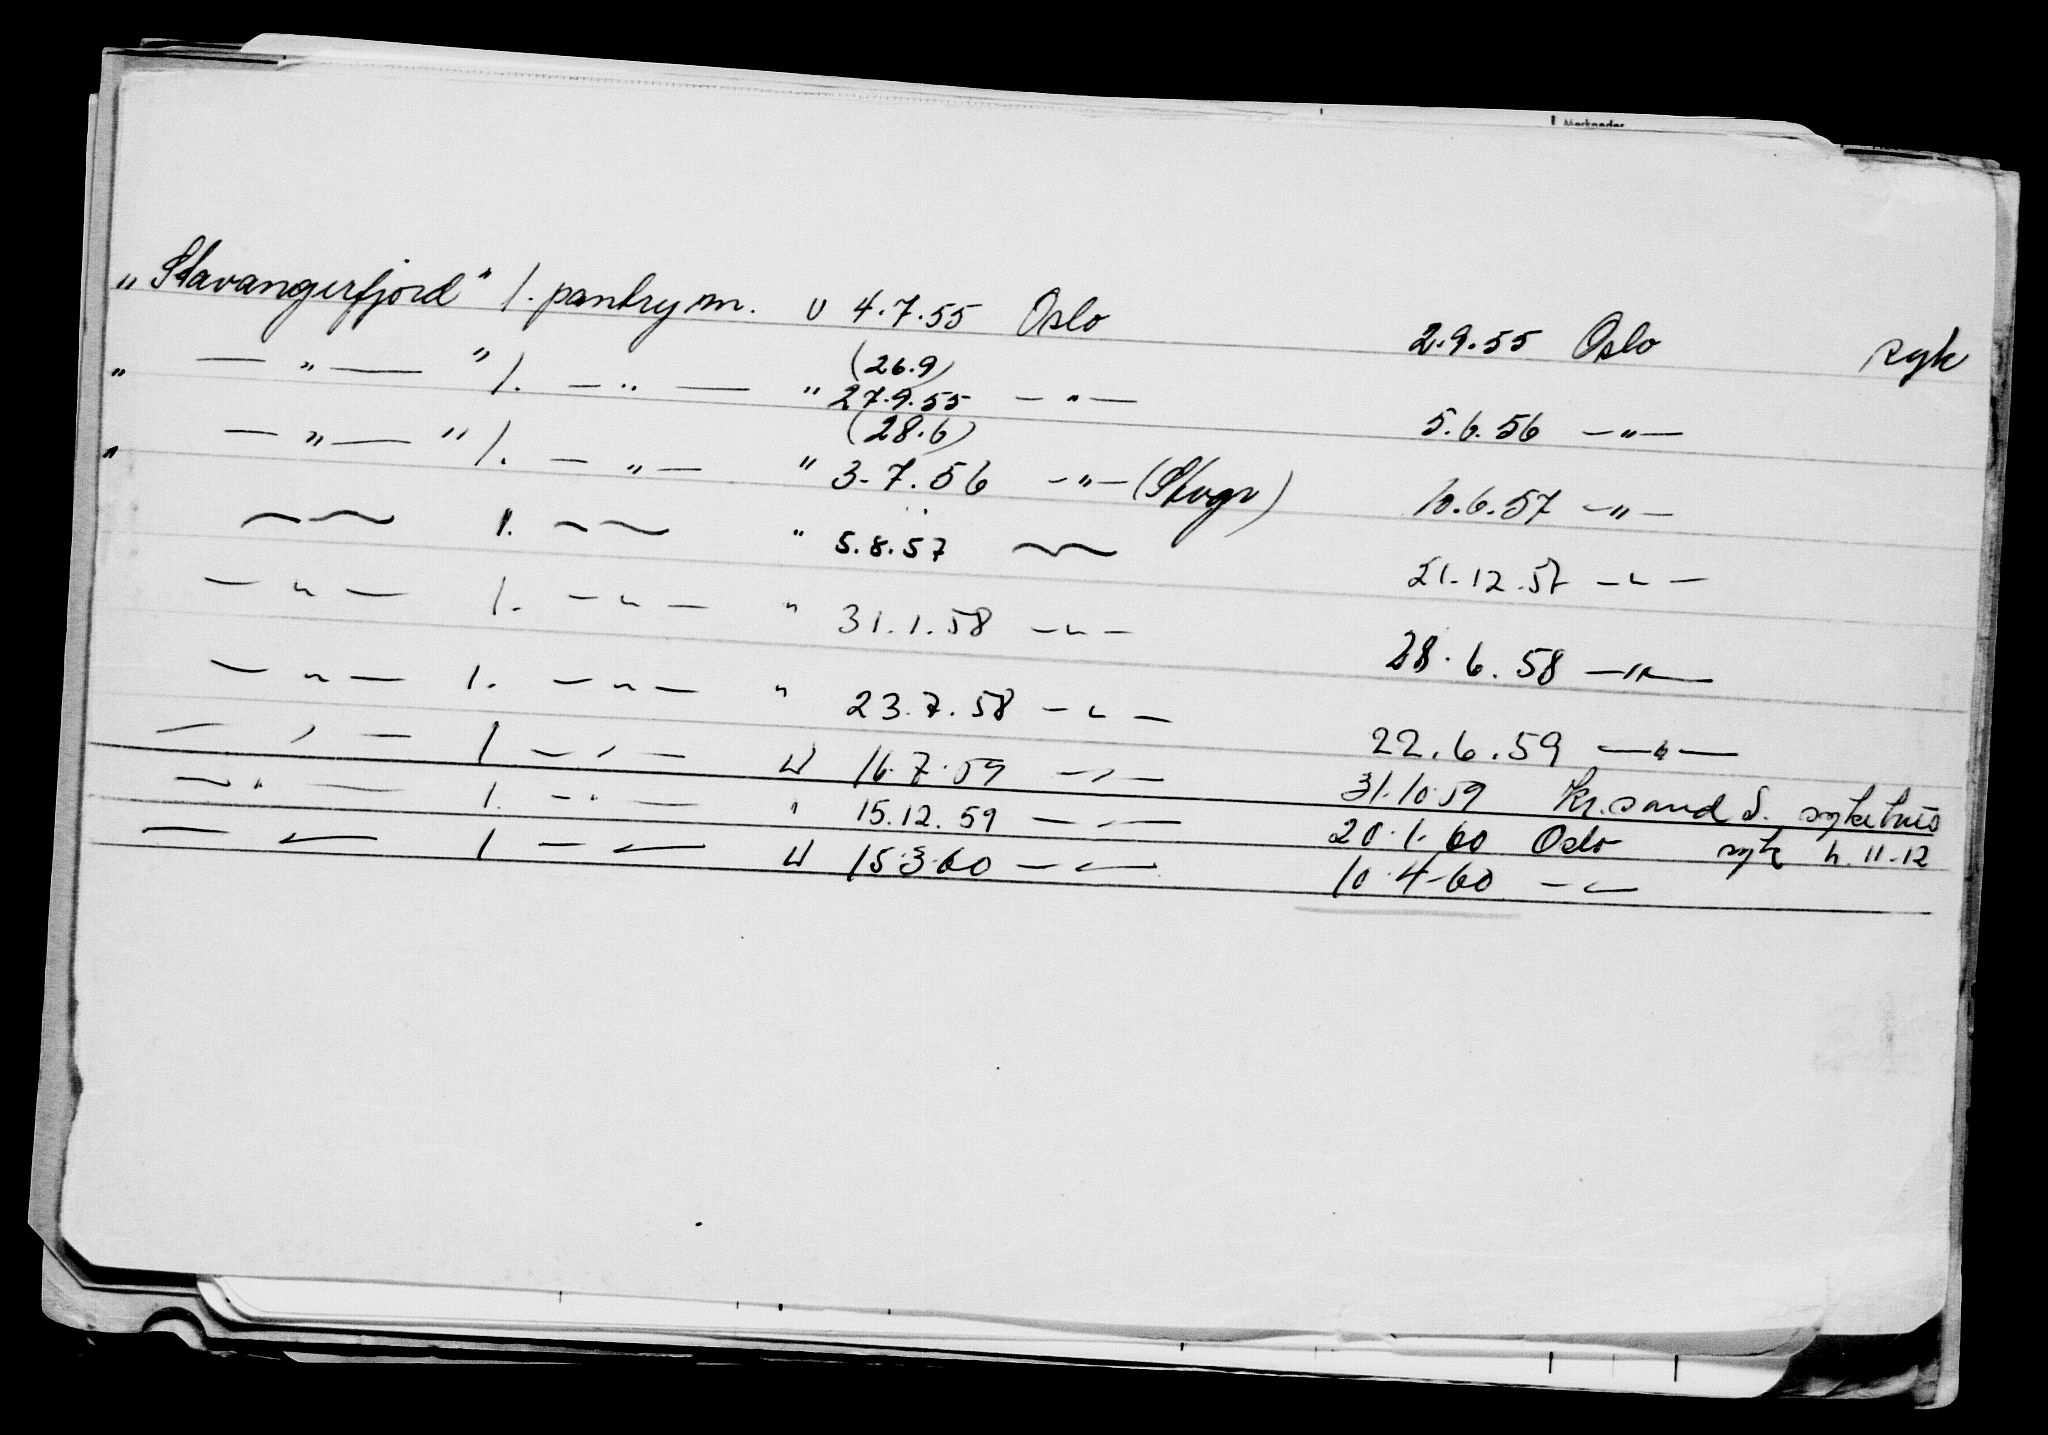 Merknader
„Stavangerfjord" 1. pantrym. u 4.7.55 Oslo 2.9.55 Oslo syk
(26.9)
„ — " — " 1. — " — " 27.9.55 — " — 5.6.56 — " —
(28.6)
" — " — " 1. — " — " 3.7.56 — " — (Stvgr) 10.6.57 — " —
— " — 1. — " — " 5.8.57 — " — 21.12.57 — " —
— " — 1. — " — " 31.1.58 — " — 28.6.58 — " —
— " — 1. — " — " 23.7.58 — " — 22.6.59 — " —
— " — 1 — " — u 16.7.59 — " — 31.10.59 Kr.sand S. sykehus
— " — 1. — " — " 15.12.59 — " — 20.1.60 Oslo syk h. 11-12
— " — 1 — " — u 15.3.60 — " — 10.4.60 — " —